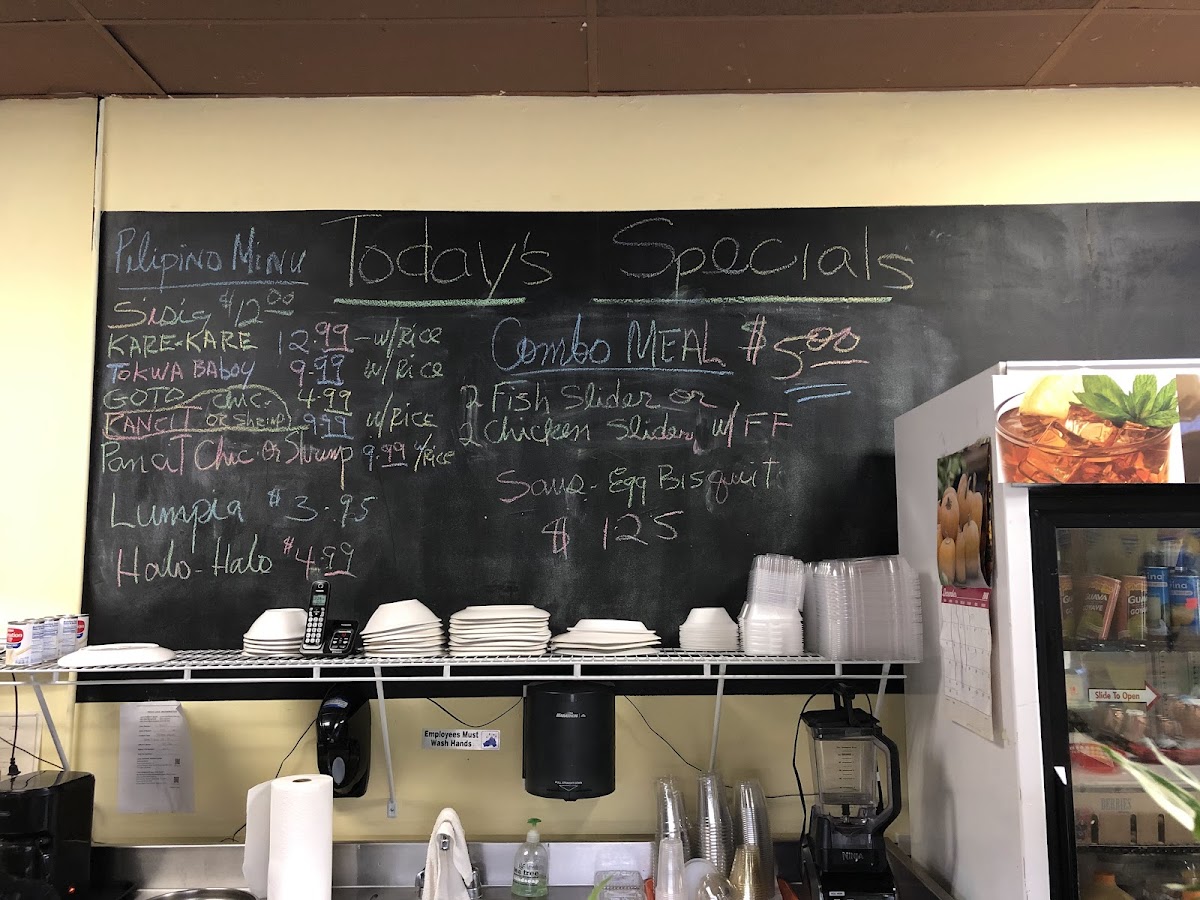 Today's Specials
Pilipino Minu
Sisig $12.00
KARE-KARE 12.99 - w/Rice
TOKWA BAboy 9.99 w/Rice
GOTO / chic. 4.99
PANCIT or Shrimp 9.99 w/Rice
Pancit Chic or Shrimp 9.99 w/Rice
Lumpia $3.95
Halo-Halo $4.99
Combo MEAL $5.00
2 Fish Slider or
2 chicken Slider w/ FF
Saus - Egg Bisquit
$ 125
Employees Must
Wash Hands
Slide To Open
GUAVA
NINJA